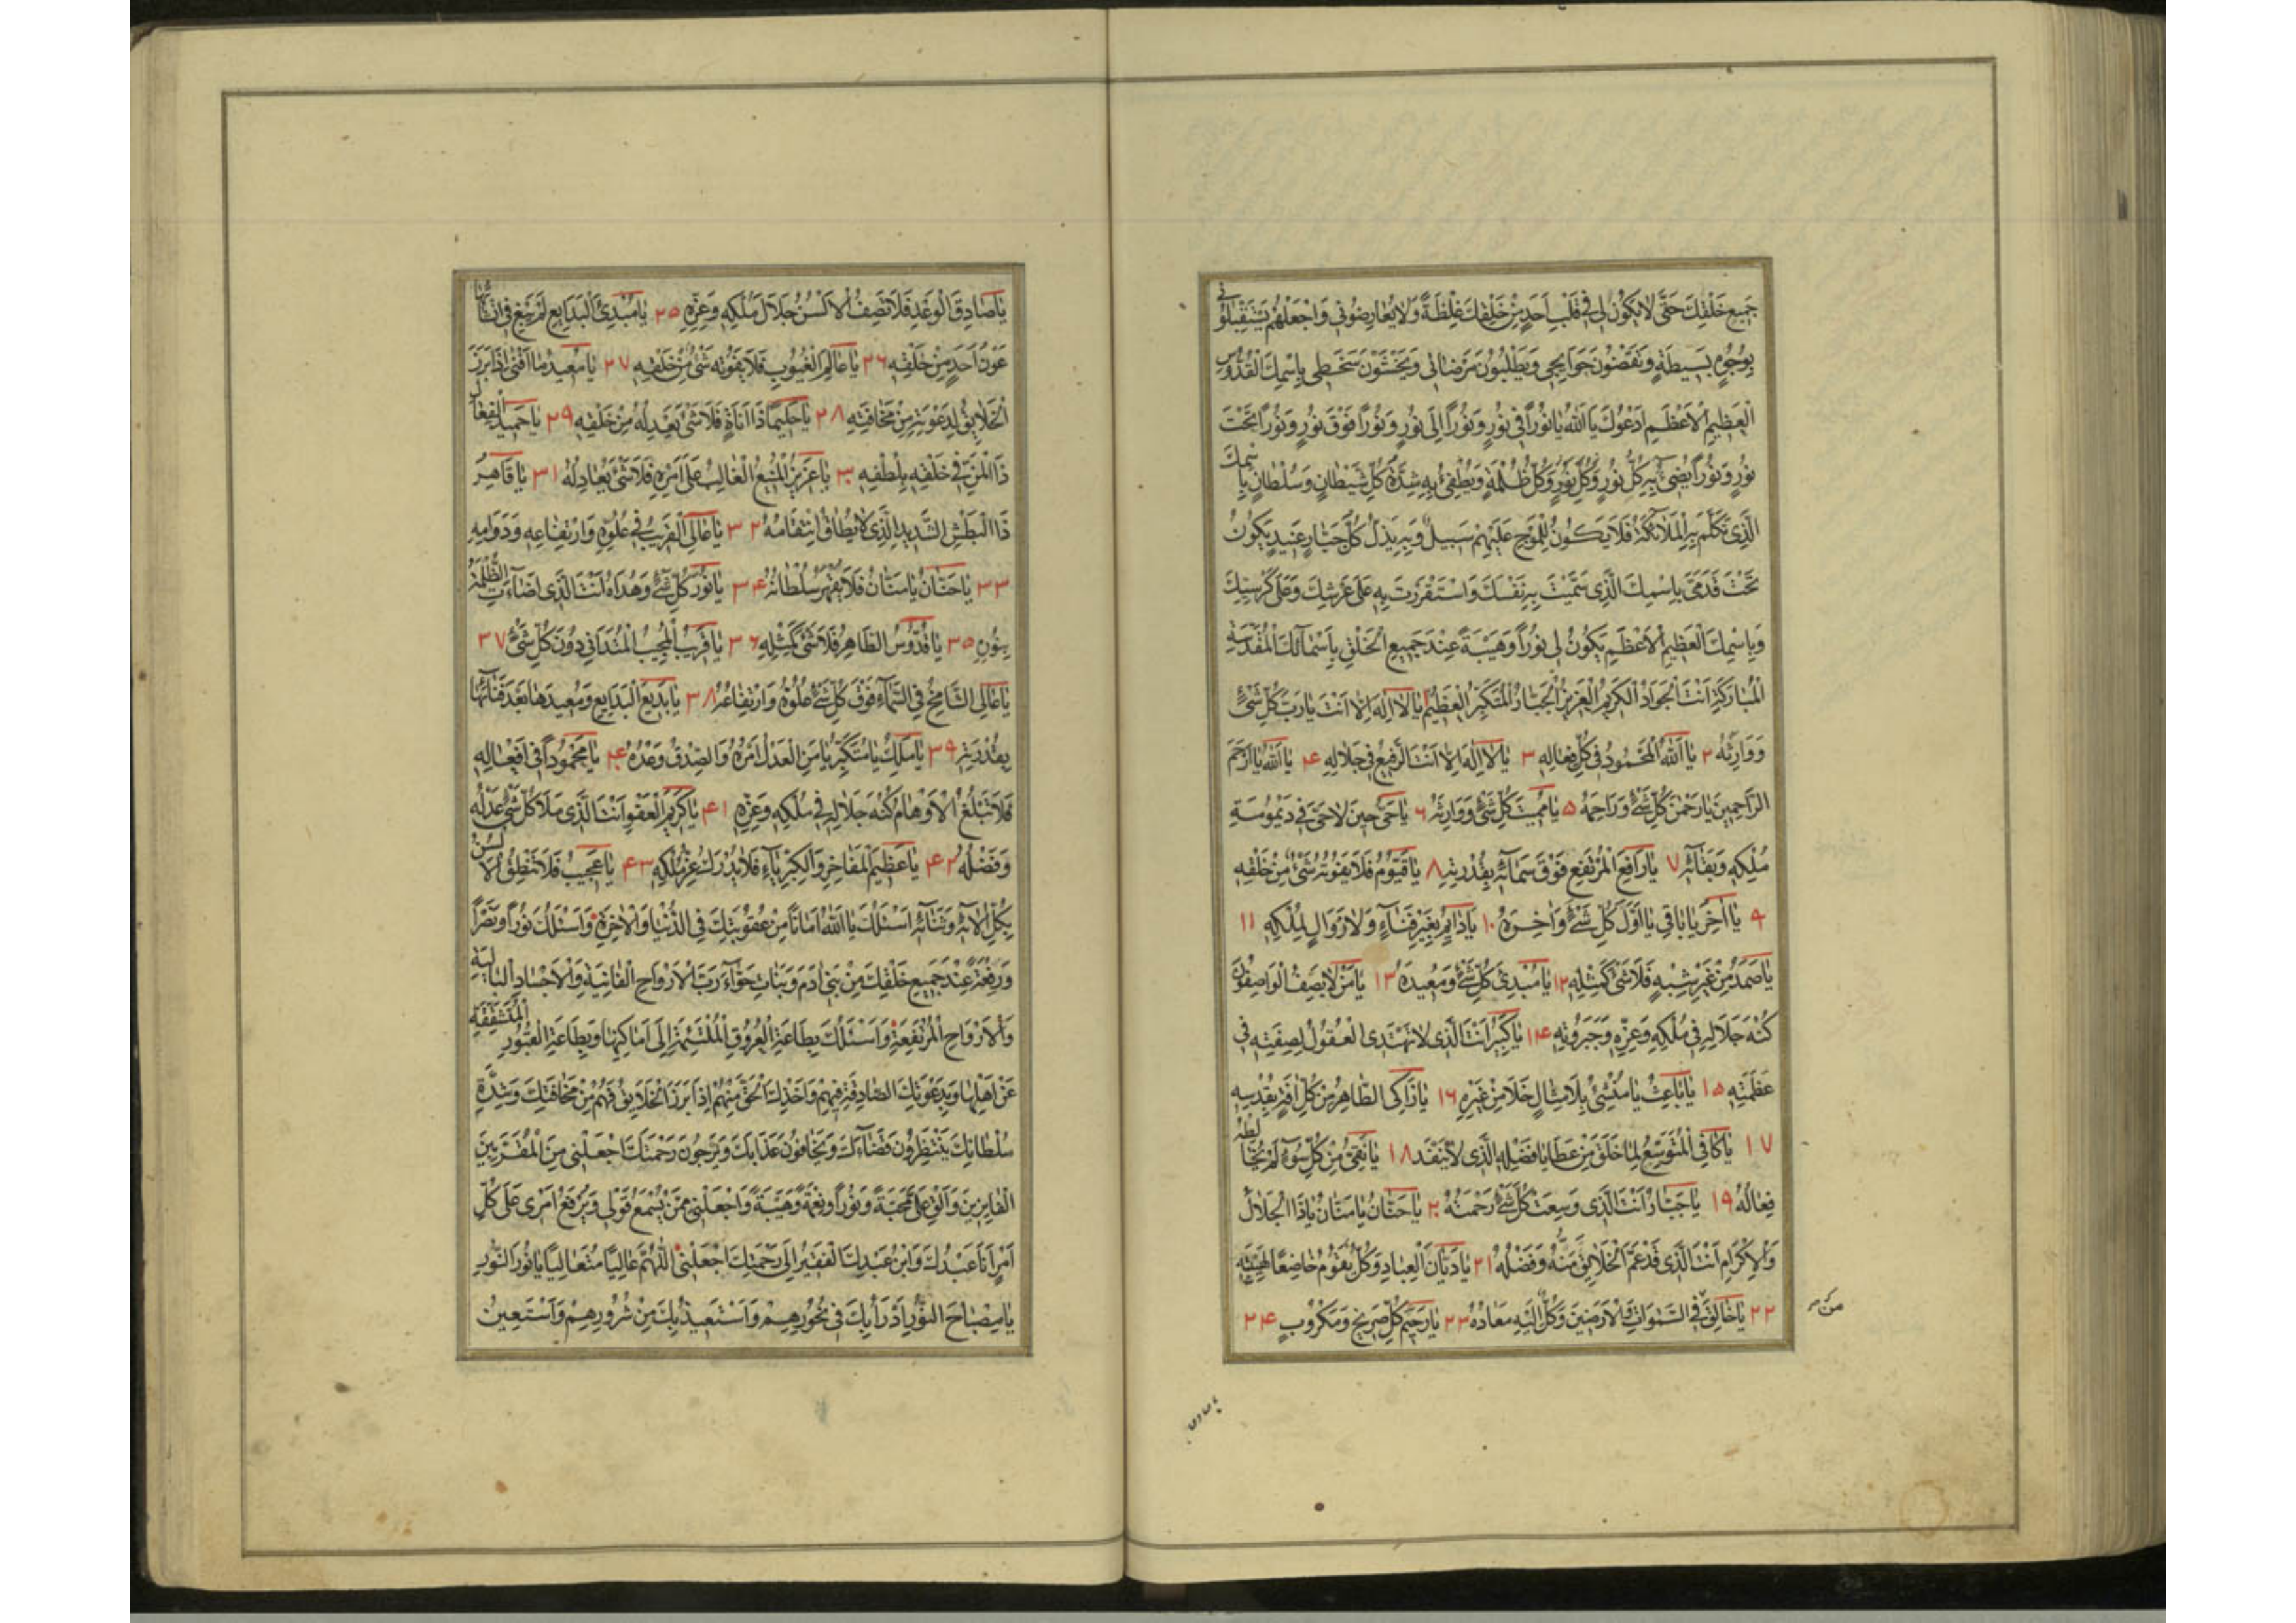 جَمِيعِ خَلْقِكَ حَتّٰى لَا يَكُونَ لِى فِى قَلْبِ اَحَدٍ مِنْ خَلْقِكَ غِلْظَةً وَلَا يُعَارِضُونِى وَاجْعَلْهُمْ يَسْتَقْبِلُونِى
بِوُجُوهٍ بَسِيطَةٍ وَيَقْضُونَ حَوَائِجِى وَيَطْلُبُونَ مَرْضَاتِى وَيَخْشَوْنَ سَخَطِى بِاسْمِكَ الْقُدُّوسِ
الْعَظِيمِ الْاَعْظَمِ اَدْعُوكَ يَا اَللهُ يَا نُورًا فِى نُورٍ وَنُورًا اِلَى نُورٍ وَنُورًا فَوْقَ نُورٍ وَنُورًا تَحْتَ
نُورٍ وَنُورًا يُضِىءُ بِهِ كُلُّ نُورٍ وَكُلَّ نُورٍ وَكُلَّ ظُلْمَةٍ وَيُطْفِئُ بِهِ شِدَّةَ كُلِّ شَيْطَانٍ وَسُلْطَانٍ بِاسْمِكَ
الَّذِى تَكَلَّمَ بِهِ الْمَلَائِكَةُ فَلَا يَكُونُ لِلْمَوْجِ عَلَيْهِمْ سَبِيلٌ وَبِهِ يَذِلُّ كُلُّ جَبَّارٍ عَنِيدٍ يَكُونُ
تَحْتَ قَدَمَىَّ بِاسْمِكَ الَّذِى سَمَّيْتَ بِهِ نَفْسَكَ وَاسْتَقْرَرْتَ بِهِ عَلَى عَرْشِكَ وَعَلَى كُرْسِيِّكَ
وَبِاسْمِكَ الْعَظِيمِ الْاَعْظَمِ يَكُونُ لِى نُورًا وَهَيْبَةً عِنْدَ جَمِيعِ الْخَلْقِ بِاَسْمَائِكَ الْمُقَدَّسَةِ
الْمُبَارَكَةِ اَنْتَ الْجَوَادُ الْكَرِيمُ الْعَزِيزُ الْجَبَّارُ الْمُتَكَبِّرُ الْعَظِيمُ يَا لَا اِلٰهَ اِلَّا اَنْتَ يَا رَبَّ كُلِّ شَىْءٍ
وَوَارِثَهُ ۲ يَا اَللهُ الْمَحْمُودُ فِى كُلِّ فِعَالِهِ ۳ يَا لَا اِلٰهَ اِلَّا اَنْتَ الرَّفِيعُ فِى جَلَالِهِ ۴ يَا اَللهُ يَا اَرْحَمَ
الرَّاحِمِينَ يَا رَحْمٰنَ كُلِّ شَىْءٍ وَرَاحِمَهُ ۵ يَا مُمِيتَ كُلِّ شَىْءٍ وَوَارِثَهُ ۶ يَا حَىُّ حِينَ لَا حَىَّ فِى دَيْمُومَةِ
مُلْكِهِ وَبَقَائِهِ ۷ يَا رَافِعَ الْمُرْتَفِعِ فَوْقَ سَمَائِهِ بِقُدْرَتِهِ ۸ يَا قَيُّومُ فَلَا يَفُوتُهُ شَىْءٌ مِنْ خَلْقِهِ
۹ يَا آخِرُ يَا بَاقِى يَا اَوَّلَ كُلِّ شَىْءٍ وَآخِرَهُ ۱۰ يَا دَائِمُ بِغَيْرِ فَنَاءٍ وَلَا زَوَالٍ لِمُلْكِهِ ۱۱
يَا صَمَدُ مِنْ غَيْرِ شِبْهٍ فَلَا شَىْءَ كَمِثْلِهِ ۱۲ يَا مُبْدِئَ كُلِّ شَىْءٍ وَمُعِيدَهُ ۱۳ يَا مَنْ لَا يَصِفُ الْوَاصِفُونَ
كُنْهَ جَلَالِهِ فِى مُلْكِهِ وَعِزِّهِ وَجَبَرُوتِهِ ۱۴ يَا كَبِيرُ اَنْتَ الَّذِى لَا تَهْتَدِى الْعُقُولُ لِصِفَتِهِ فِى
عَظَمَتِهِ ۱۵ يَا بَاعِثُ يَا مُنْشِئُ بِلَا مِثَالٍ خَلَا مِنْ غَيْرِهِ ۱۶ يَا زَاكِى الطَّاهِرُ مِنْ كُلِّ آفَةٍ بِقُدْسِهِ
۱۷ يَا كَافِى الْمُتَوَسِّعُ لِمَا خَلَقَ مِنْ عَطَايَا فَضْلِهِ الَّذِى لَا يَنْفَدُ ۱۸ يَا نَقِىُّ مِنْ كُلِّ سُوءٍ لَمْ يُخَالِطْهُ
فِعَالُهُ ۱۹ يَا جَبَّارُ اَنْتَ الَّذِى وَسِعَتْ كُلَّ شَىْءٍ رَحْمَتُهُ ۲۰ يَا حَنَّانُ يَا مَنَّانُ يَا ذَا الْجَلَالِ
وَالْاِكْرَامِ اَنْتَ الَّذِى قَدْ عَمَّ الْخَلَائِقَ مَنُّهُ وَفَضْلُهُ ۲۱ يَا دَيَّانَ الْعِبَادِ وَكُلٌّ يَقُومُ خَاضِعًا لِهَيْبَتِهِ
۲۲ يَا خَالِقَ فِى السَّمٰوَاتِ وَالْاَرَضِينَ وَكُلٌّ اِلَيْهِ مَعَادُهُ ۲۳ يَا رَحِيمَ كُلِّ صَرِيخٍ وَمَكْرُوبٍ ۲۴
يَا صَادِقَ الْوَعْدِ فَلَا تَصِفُ الْاَلْسُنُ جَلَالَ مُلْكِهِ وَعِزِّهِ ۲۵ يَا مُبْدِئَ الْبَدَايِعِ لَمْ يَبْغِ فِى اِنْشَائِهَا
عَوْنَ اَحَدٍ مِنْ خَلْقِهِ ۲۶ يَا عَالِمَ الْغُيُوبِ فَلَا يَفُوتُهُ شَىْءٌ مِنْ خَلْقِهِ ۲۷ يَا مُعِيدَ مَا اَفْنٰى اِذَا بَرَزَ
الْخَلَائِقُ لِدَعْوَتِهِ مِنْ مَخَافَتِهِ ۲۸ يَا حَلِيمًا ذَا اَنَاةٍ فَلَا شَىْءَ يَعْدِلُهُ مِنْ خَلْقِهِ ۲۹ يَا حَمِيدَ الْفِعَالِ
ذَا الْمَنِّ فِى خَلْقِهِ بِلُطْفِهِ ۳۰ يَا عَزِيزُ الْمَنِيعُ الْغَالِبُ عَلَى اَمْرِهِ فَلَا شَىْءَ يُعَادِلُهُ ۳۱ يَا قَاهِرُ
ذَا الْبَطْشِ الشَّدِيدِ الَّذِى لَا يُطَاقُ انْتِقَامُهُ ۳۲ يَا عَالِى الْقَرِيبُ فِى عُلُوِّهِ وَارْتِفَاعِهِ وَدَوَامِهِ
۳۳ يَا حَنَّانُ يَا مَنَّانُ فَلَا يُقْهَرُ سُلْطَانُهُ ۳۴ يَا نُورَ كُلِّ شَىْءٍ وَهُدَاهُ اَنْتَ الَّذِى اَضَاءَتِ الظُّلْمَةُ
بِنُورِهِ ۳۵ يَا قُدُّوسُ الطَّاهِرُ فَلَا شَىْءَ كَمِثْلِهِ ۳۶ يَا قَرِيبُ الْمُجِيبُ الْمُتَدَانِى دُونَ كُلِّ شَىْءٍ ۳۷
يَا عَالِى الشَّامِخُ فِى السَّمَاءِ فَوْقَ كُلِّ شَىْءٍ عُلُوُّهُ وَارْتِفَاعُهُ ۳۸ يَا بَدِيعَ الْبَدَايِعِ وَمُعِيدَهَا بَعْدَ فَنَائِهَا
بِقُدْرَتِهِ ۳۹ يَا مَلِكُ يَا مُتَكَبِّرُ يَا مَنِ الْعَدْلُ اَمْرُهُ وَالصِّدْقُ وَعْدُهُ ۴۰ يَا مَحْمُودًا فِى اَفْعَالِهِ
فَلَا تَبْلُغُ الْاَوْهَامُ كُنْهَ جَلَالِهِ فِى مُلْكِهِ وَعِزِّهِ ۴۱ يَا كَرِيمَ الْعَفْوِ اَنْتَ الَّذِى مَلَاَ كُلَّ شَىْءٍ عَدْلُهُ
وَفَضْلُهُ ۴۲ يَا عَظِيمَ الْمَفَاخِرِ وَالْكِبْرِيَاءِ فَلَا يُدْرَكُ عِزُّ مُلْكِهِ ۴۳ يَا عَجِيبُ فَلَا تَنْطِقُ الْاَلْسُنُ
بِكُلِّ آلَائِهِ وَثَنَائِهِ اَسْئَلُكَ يَا اَللهُ اَمَانًا مِنْ عُقُوبَتِكَ فِى الدُّنْيَا وَالْآخِرَةِ وَاَسْئَلُكَ نُورًا وَنَصْرًا
وَرِفْعَةً عِنْدَ جَمِيعِ خَلْقِكَ مِنْ بَنِى آدَمَ وَبَنَاتِ حَوَّاءَ رَبَّ الْاَرْوَاحِ الْفَانِيَةِ وَالْاَجْسَادِ الْبَالِيَةِ
وَالْاَرْوَاحِ الْمُرْتَفِعَةِ وَاَسْئَلُكَ بِطَاعَةِ الْعُرُوقِ الْمُلْتَئِمَةِ اِلَى اَمَاكِنِهَا وَبِطَاعَةِ الْقُبُورِ الْمُتَشَقِّقَةِ
عَنْ اَهْلِهَا وَبِدَعْوَتِكَ الصَّادِقَةِ فِيهِمْ وَاَخْذِكَ الْحَقَّ مِنْهُمْ اِذَا بَرَزَ الْخَلَايِقُ فَهُمْ مِنْ مَخَافَتِكَ وَشِدَّةِ
سُلْطَانِكَ يَنْتَظِرُونَ قَضَاءَكَ وَيَخَافُونَ عَذَابَكَ وَيَرْجُونَ رَحْمَتَكَ اجْعَلْنِى مِنَ الْمُقَرَّبِينَ
الْفَايِزِينَ وَاَلْقِ عَلَىَّ مَحَبَّةً وَنُورًا وَنِعْمَةً وَهَيْبَةً وَاجْعَلْنِى مِمَّنْ يُسْمَعُ قَوْلِى وَيُرْفَعُ اَمْرِى عَلَى كُلِّ
اَمْرٍ اَنَا عَبْدُكَ وَابْنُ عَبْدِكَ الْفَقِيرُ اِلَى رَحْمَتِكَ اجْعَلْنِى اَللّٰهُمَّ عَالِيًا مُتَعَالِيًا يَا نُورَ النُّورِ
يَا مِصْبَاحَ النُّورِ اَدْرَأُ بِكَ فِى نُحُورِهِمْ وَاَسْتَعِيذُ بِكَ مِنْ شُرُورِهِمْ وَاَسْتَعِينُ